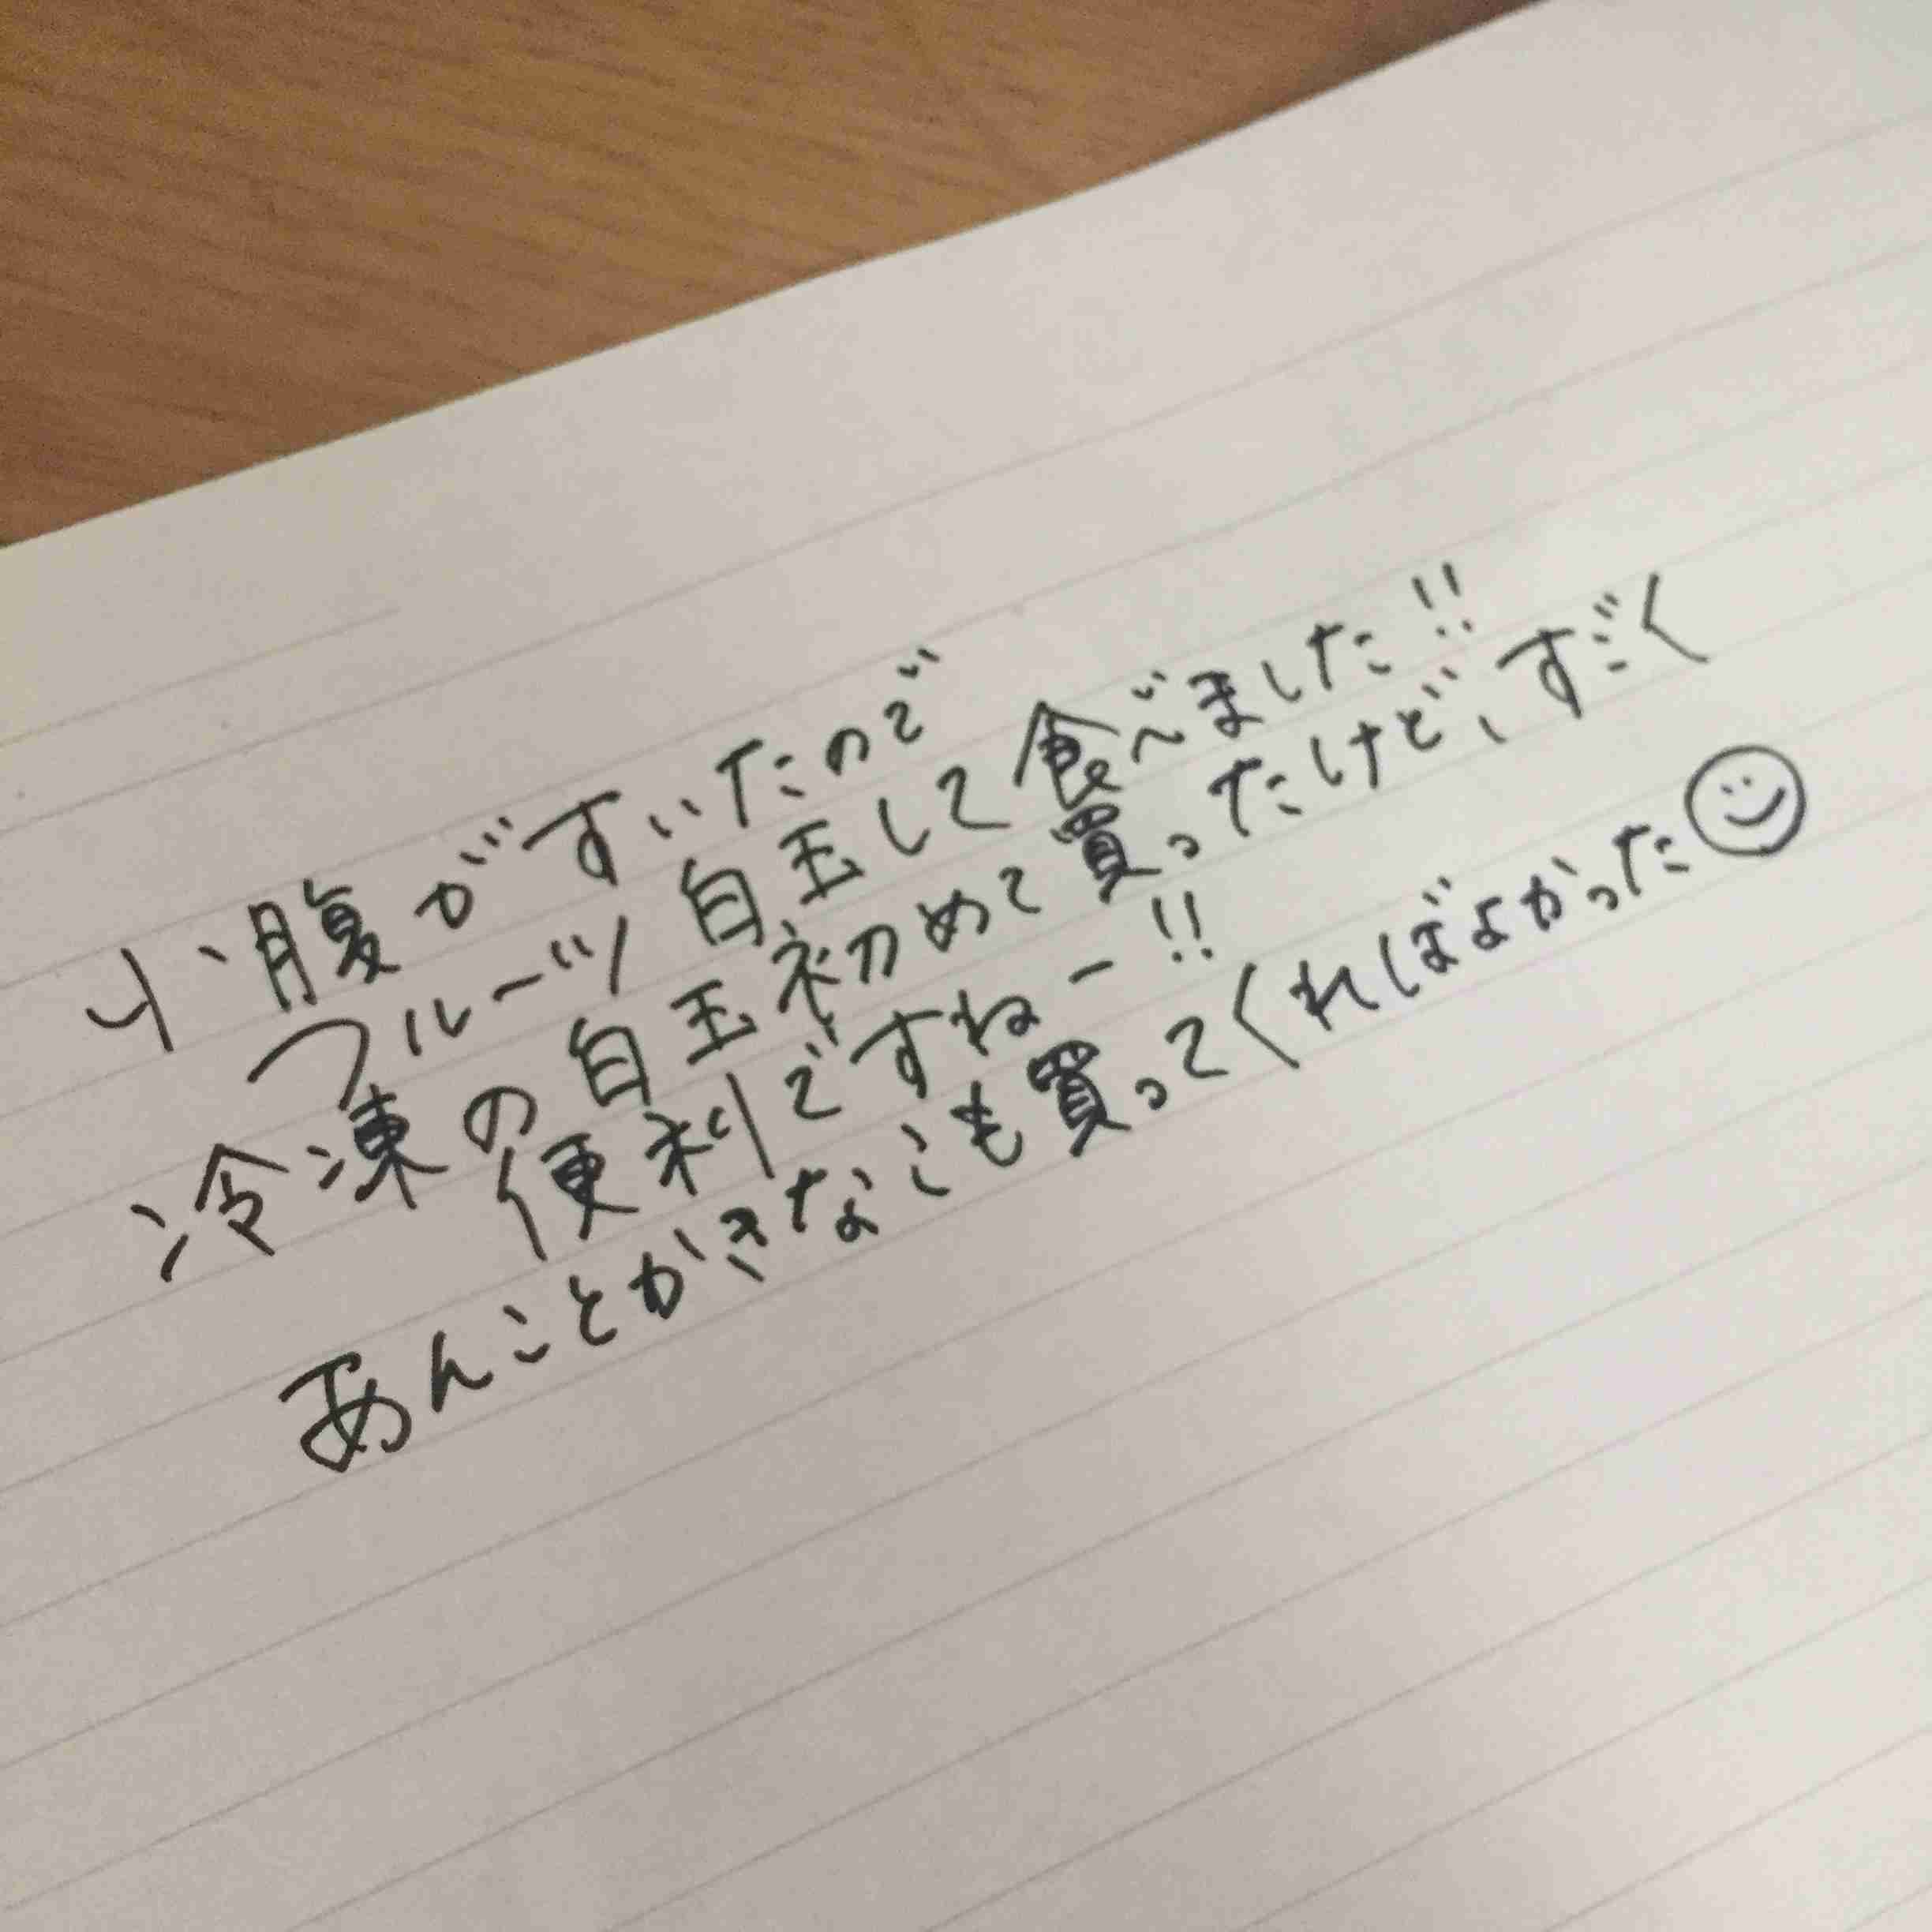 小腹がすいたので
フルーツ白玉して食べました!!
冷凍の白玉初めて買ったけど、すごく
便利ですねー!!
あんことかきなこも買ってくればよかった☺